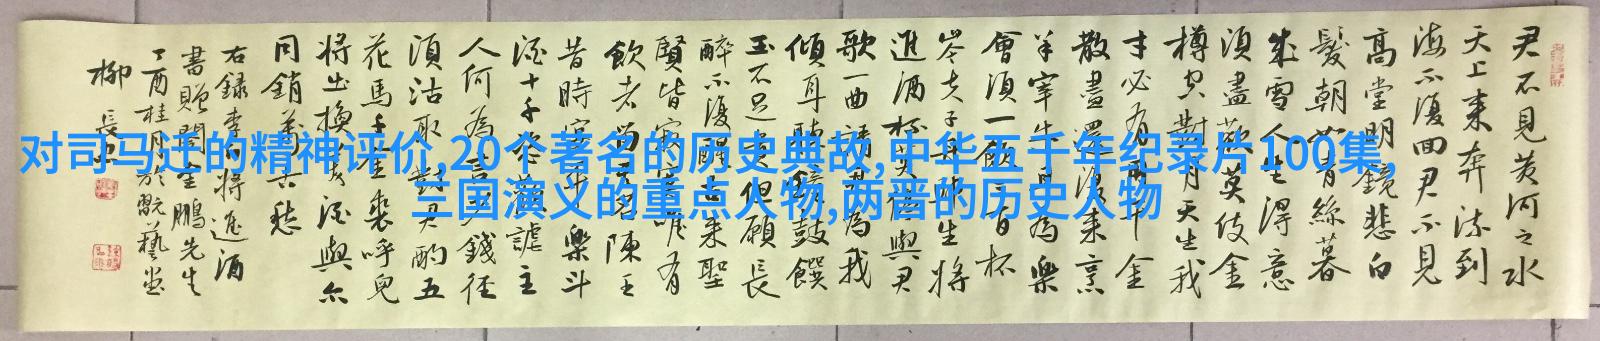 君不見黃河之水
天上来奔流到
海不復回君不見
高堂明鏡悲白
髮朝如青絲暮
成雪人生得意
須盡歡莫使金
樽空對月天生我
才必有用千金
散盡還復来烹
羊宰牛且為樂
會須一飲三百杯
岑夫子丹丘生將
進酒杯莫停與君
歌一曲請君為我
傾耳聽鐘鼓饌
玉不足貴但願長
醉不復醒古来聖
賢皆寂寞唯有
飲者留其名陳王
昔時宴平樂斗
酒十千恣歡謔主
人何為言少錢徑
須沽取對君酌五
花馬千金裘呼兒
將出換美酒與尔
同銷萬古愁
右録李白將進酒
書贈生鵬先生
丁酉桂月於翫藝堂
柳長忠
对司马迁的精神评价,20个著名的历史典故,中华五千年纪录片100集,
三国演义的重点人物,两晋的历史人物